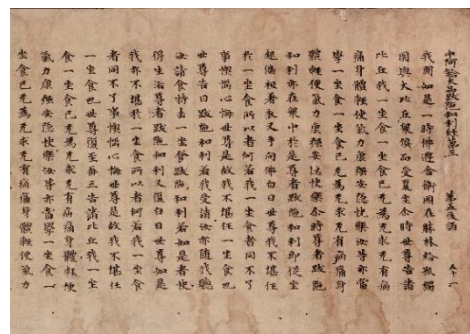 中阿鋡大品跋陀和利經第三 第五後誦 九十一
我聞如是一時佛遊舍衛國在勝林給孤獨
園與大比丘眾俱而受夏坐尒時世尊告諸
比丘我一坐食一坐食已无為无求无有病
痛身體輕便氣力康強安隱快樂汝等亦當
學一坐食一坐食已无為无求无有病痛身
體輕便氣力康強安隱快樂尒時尊者跋陀
和利亦在眾中於是尊者跋陀和利即從坐
起偏袒著衣叉手向佛白曰世尊我不堪任
於一坐食所以者何若我一坐食者同不了
事懊惱心悔世尊是故我不堪任一坐食也
世尊告曰跋陀和利若我受請汝亦隨我聽
汝請食持去一坐食跋陀和利若如是者快
得生活尊者跋陀和利又復白曰世尊如是
我亦不堪任於一坐食所以者何若我一坐食
者同不了事懊惱心悔世尊是故我不堪任
一坐食也世尊復至再三告諸比丘我一坐
食一坐食已无為无求无有病痛身體輕便
氣力康強安隱快樂汝等亦當學一坐食一
坐食已无為无求无有病痛身體輕便氣力